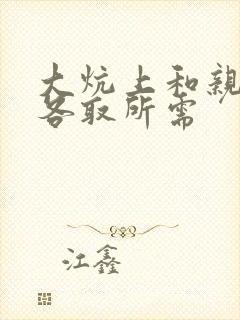 大炕上和亲
各取所需
江鑫